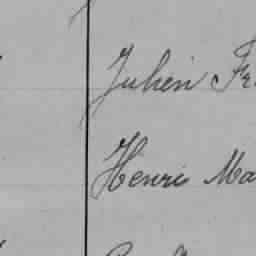 Julien Fr
Henri Ma